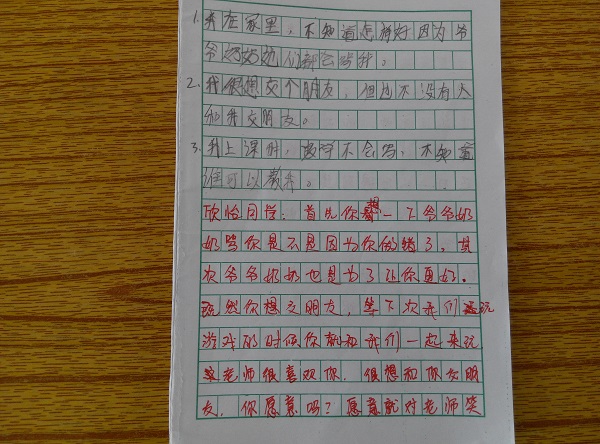 1.我在家里,不知道怎样好因为爷
爷奶奶他们都会骂我。
2.我很想交个朋友,但也不没有人
和我交朋友。
3.我上课时,汉字不会写,不知道
谁可以教我。
欣怡同学:首先你想一下爷爷奶
奶骂你是不是因为你做错了,其
次爷爷奶奶也是为了让你更好。
既然你想交朋友,等下次我们玩
游戏的时候你就和我们一起来玩
老师很喜欢你.很想和你交朋
友.你愿意吗?愿意就对老师笑